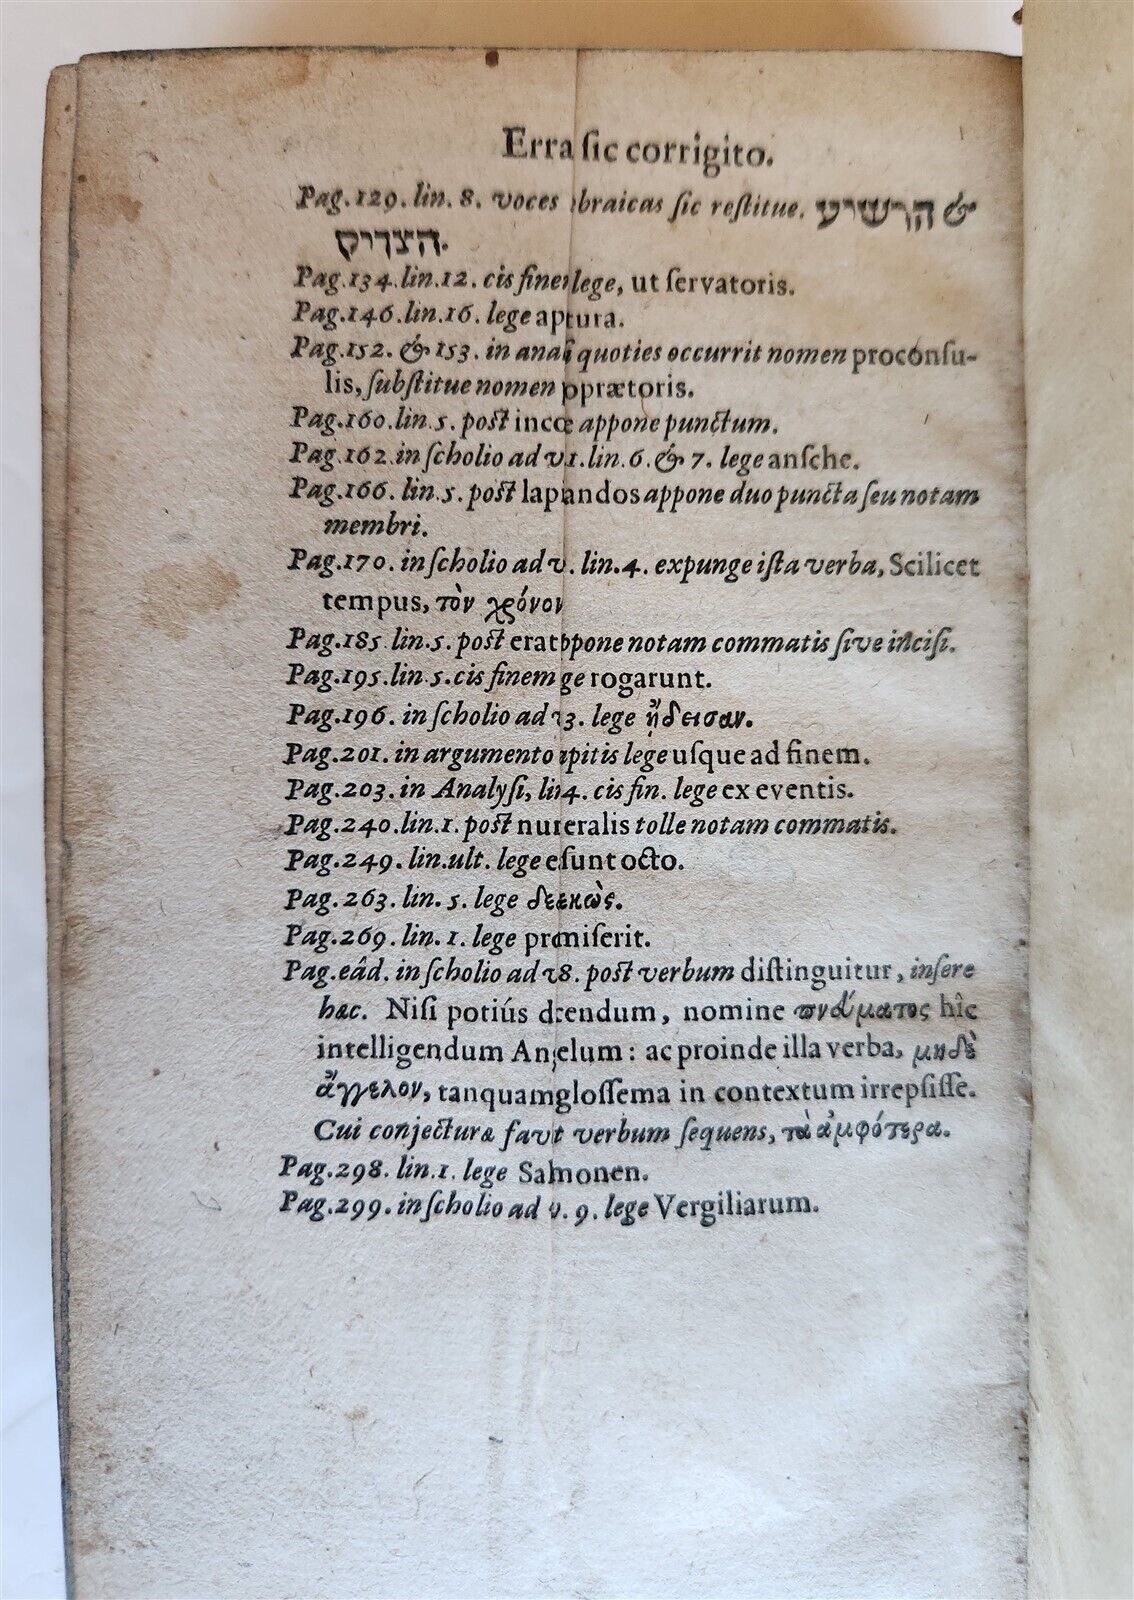 Erra sic corrigito.
Pag. 129. lin. 8. voces braicas sic restitue. הרשיע &
הצדיק.
Pag. 134. lin. 12. cis fine lege, ut servatoris.
Pag. 146. lin. 16. lege aptura.
Pag. 152. & 153. in anal quoties occurrit nomen proconsu-
lis, substitue nomen oprætoris.
Pag. 160. lin. 5. post incœ appone punctum.
Pag. 162. in scholio ad v 1. lin. 6. & 7. lege ansche.
Pag. 166. lin. 5. post lapandos appone duo puncta seu notam
membri.
Pag. 170. in scholio ad v. lin. 4. expunge ista verba, Scilicet
tempus, τὸν χρόνον
Pag. 185. lin. 5. post erat ppone notam commatis sive incisi.
Pag. 195. lin. 5. cis finem ge rogarunt.
Pag. 196. in scholio ad 3. lege ᾔδεισαν.
Pag. 201. in argumento pitis lege usque ad finem.
Pag. 203. in Analysi, li 4. cis fin. lege ex eventis.
Pag. 240. lin. 1. post nuteralis tolle notam commatis.
Pag. 249. lin. ult. lege esunt octo.
Pag. 263. lin. 5. lege δεεκὼς.
Pag. 269. lin. 1. lege prmiserit.
Pag. eâd. in scholio ad 8. post verbum distinguitur, insere
hæc. Nisi potiús dcendum, nomine πνεύματος hîc
intelligendum Angelum: ac proinde illa verba, μηδὲ
ἄγγελον, tanquam glossema in contextum irrepsisse.
Cui conjecturæ favt verbum sequens, τὰ ἀμφότερα.
Pag. 298. lin. 1. lege Salmonen.
Pag. 299. in scholio ad v. 9. lege Vergiliarum.